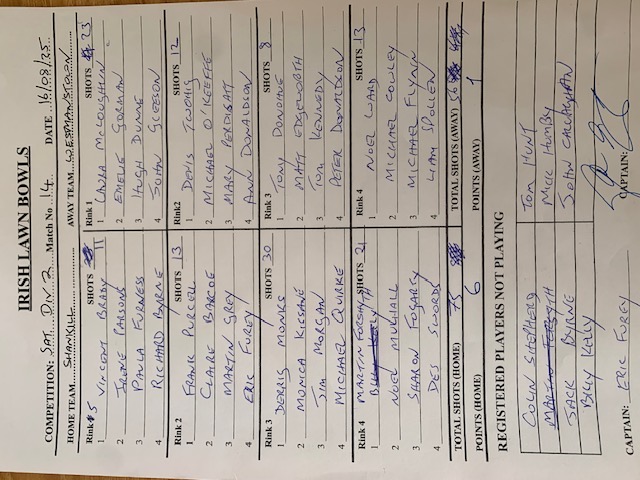 IRISH LAWN BOWLS
COMPETITION: SAT. DIV 2 Match No 14 DATE 16/08/25
HOME TEAM SHANKILL AWAY TEAM WESTMANSTOWN
Rink 5 SHOTS 11 Rink 1 SHOTS 23
1 VINCENT BRABY 1 UNA McLOUGHLIN
2 IRENE PARSONS 2 EMELIE GORMAN
3 PAULA FURNESS 3 HUGH DUNNE
4 RICHARD BYRNE 4 JOHN GLEESON
Rink 2 SHOTS 13 Rink2 SHOTS 12
1 FRANK PURCELL 1 DENIS TWOHIG
2 CLAIRE BARCOE 2 MICHAEL O'KEEFFE
3 MARTIN GREY 3 MARY PERDISATT
4 ERIC FUREY 4 ANN DONALDSON
Rink 3 SHOTS 30 Rink 3 SHOTS 8
1 DERRIS MONKS 1 TONY DONOHOE
2 MONICA KISSANE 2 MATT EDGEWORTH
3 JIM MORGAN 3 TOM KENNEDY
4 MICHAEL QUIRKE 4 PETER DONALDSON
Rink 4 SHOTS 21 Rink 4 SHOTS 13
1 MARTIN FORSYTH 1 NOEL WARD
2 NOEL MULHALL 2 MICHAEL COWLEY
3 SHARON FOGARTY 3 MICHAEL FLYNN
4 DES SWORDS 4 LIAM SPOLLEN
TOTAL SHOTS (HOME) 75 TOTAL SHOTS (AWAY) 56
POINTS (HOME) 6 POINTS (AWAY) 1
REGISTERED PLAYERS NOT PLAYING
COLIN SHEPHERD TOM HUNT
MARTIN FORSYTH MICK HUMBY
JACK BYRNE JOHN CALLAGHAN
BILLY KELLY
CAPTAIN: ERIC FUREY CAPTAIN: